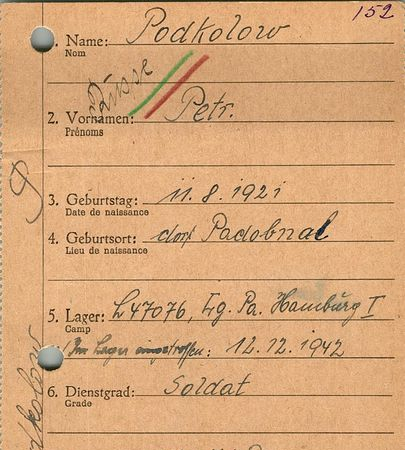 152
1. Name: Podkolow
Nom
Russe
2. Vornamen: Petr.
Prénoms
3. Geburtstag: 11.8.1921
Date de naissance
4. Geburtsort: dorf Padobnal
Lieu de naissance
5. Lager: L47076, Lg. Pa. Hamburg I
Camp
(Im Lager eingetroffen: 12.12.1942
6. Dienstgrad: Soldat
Grade